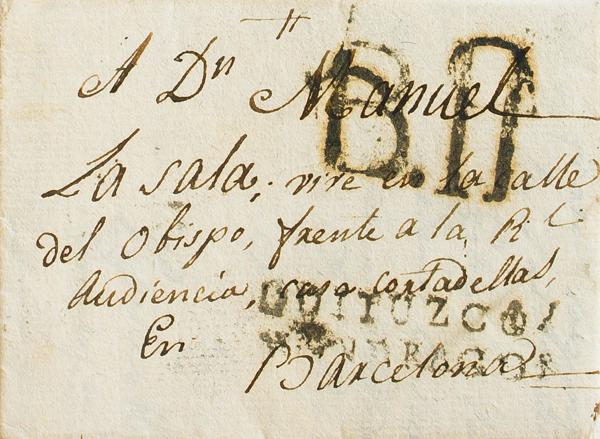 A Dn Manuel
La sala; vive en la Calle
del Obispo, frente a la Rl.
Audiencia, casa cortadellas,
En
Barcelona
GUIPUZCOA
MONDRAGON